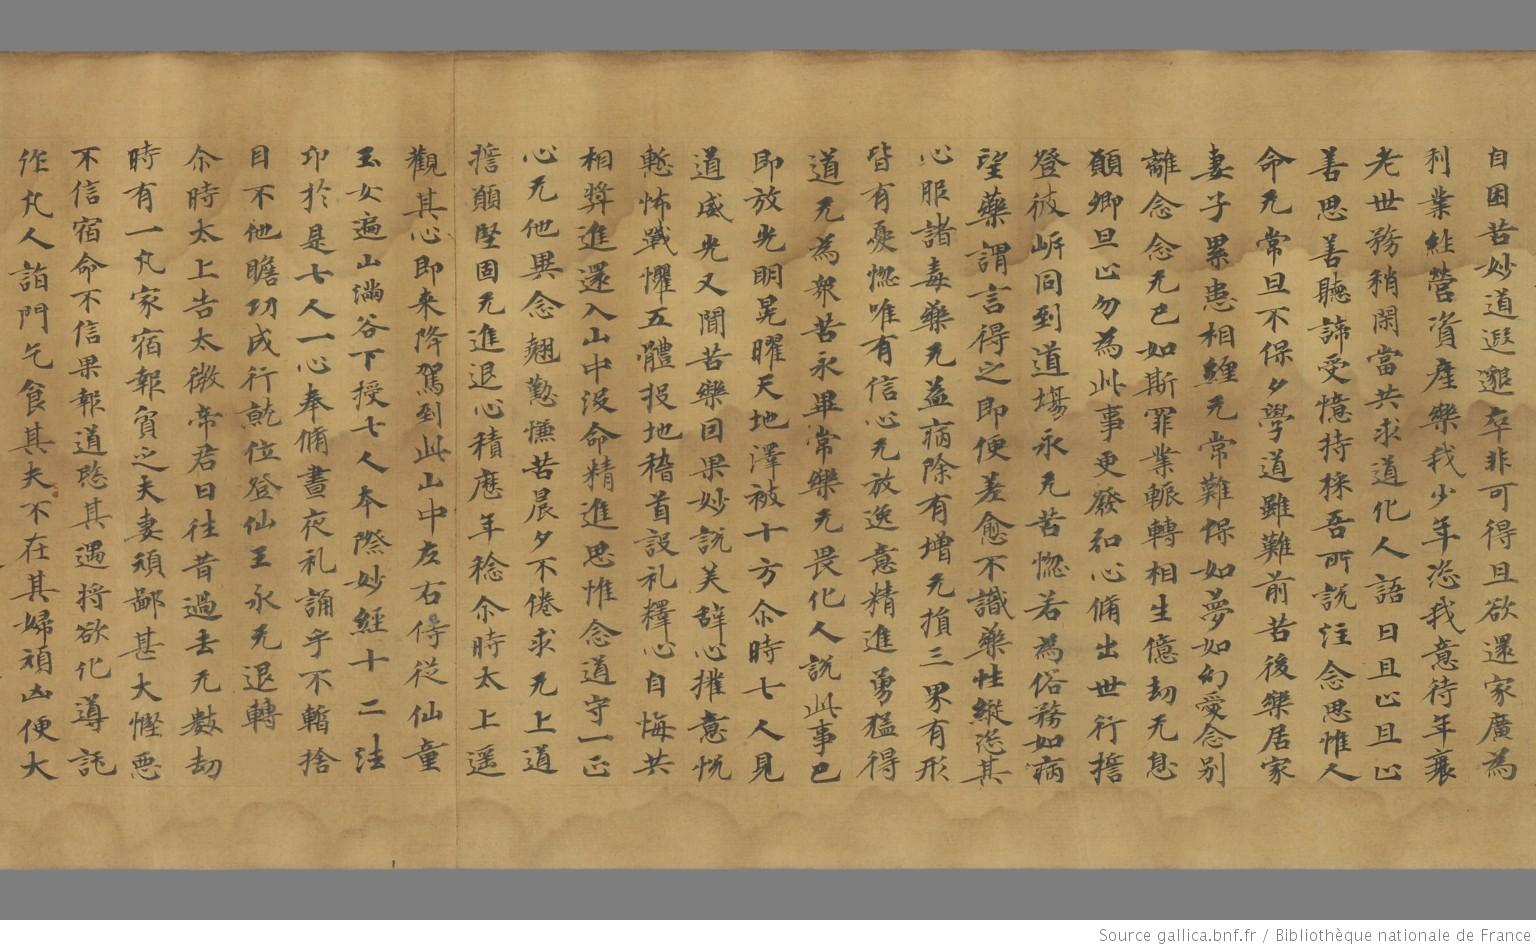 自困苦妙道遐邈卒非可得且欲還家廣為
利業經營資産樂我少年恣我意待年衰
老世務稍閑當共求道化人語曰且止且止
善思善聽諦受憶持採吾所説注念思惟人
命无常旦不保夕學道雖難前苦後樂居家
妻子累患相纏无常難保如夢如幻愛念别
離念念无已如斯罪業輾轉相生億劫无息
願卿且止勿為此事更發初心脩出世行擔
登彼岍同到道場永无苦惚若為俗務如病
望藥謂言得之即便差愈不識藥性縱恣其
心服諸毒藥无益病除有增无損三界有形
皆有憂惚唯有信心无放逸意精進勇猛得
道无為衆苦永畢常樂无畏化人説此事已
即放光明晃曜天地澤被十方尒時七人見
道威光又聞苦樂因果妙説美辞心摧意恱
慙怖戰懼五體投地稽首設礼釋心自悔共
相弉進還入山中没命精進思惟念道守一正
心无他異念翹懃慊苦晨夕不倦求无上道
擔願堅固无進退心積歴年稔尒時太上遥
觀其心即来降駕到此山中左右侍従仙童
玉女遍山滿谷下授七人本際妙經十二法
印於是七人一心奉脩晝夜礼誦乎不暫捨
目不他瞻功成行就位登仙王永无退轉
尒時太上告太微帝君曰往昔過去无數劫
時有一凡家宿報貧乏夫妻頑鄙甚大慳惡
不信宿命不信果報道愍其遇将欲化導託
作凡人詣門乞食其夫不在其婦頑凶便大